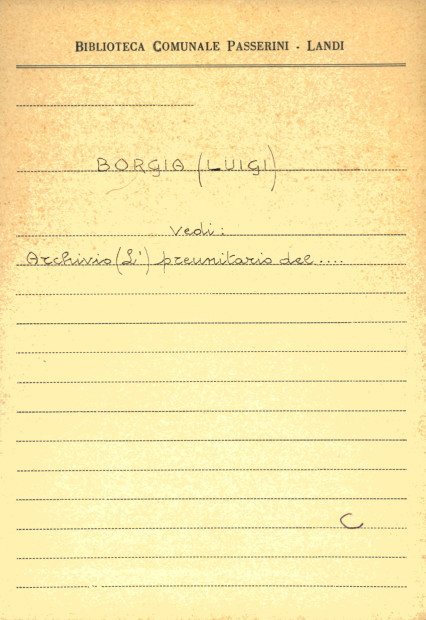 BIBLIOTECA COMUNALE PASSERINI - LANDI
BORGIA (LUIGI)
Vedi:
Archivio (L') preunitario del....
C